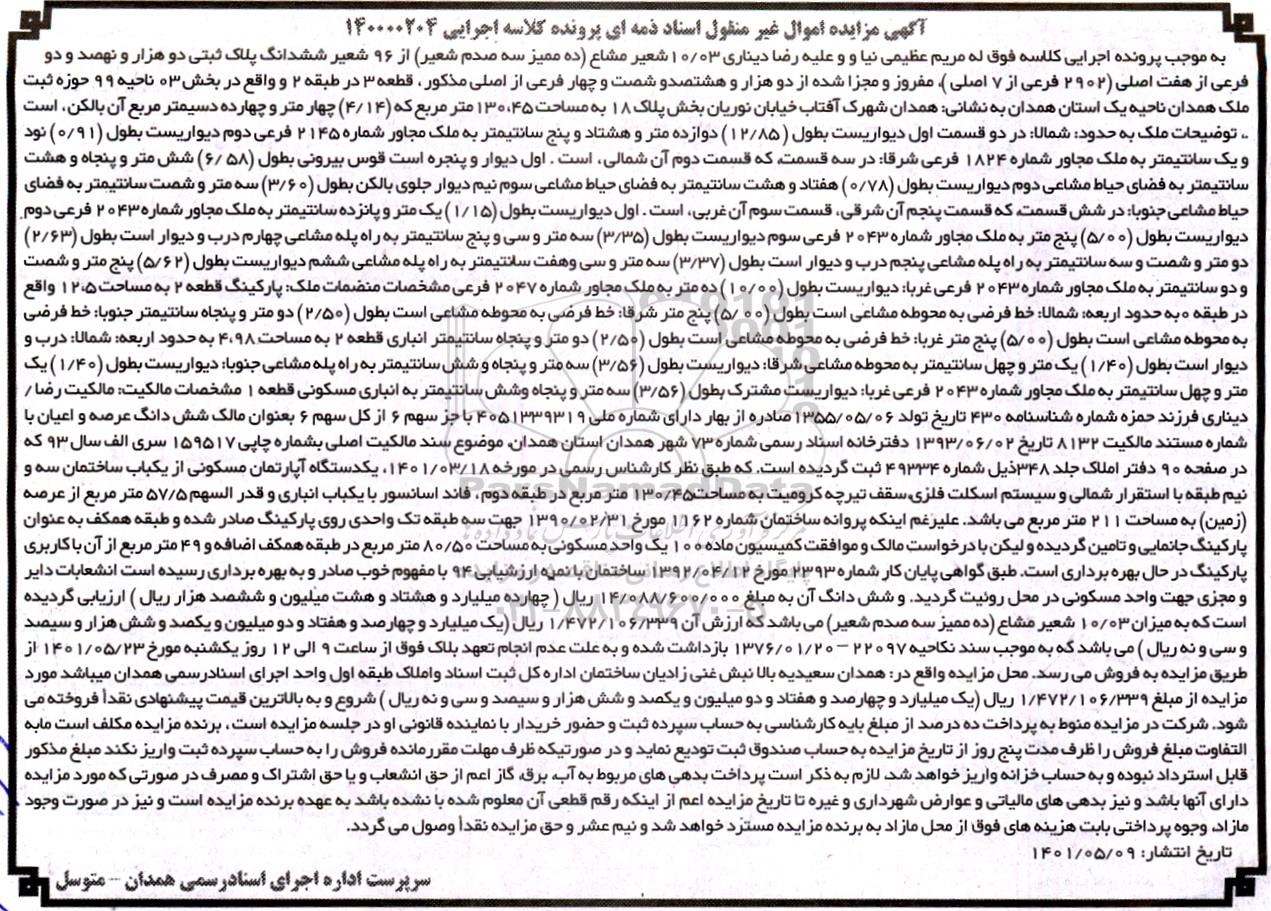 آگهی مزایده اموال غیر منقول اسناد ذمه ای پرونده کلاسه اجرایی ۱۴۰۰۰۰۲۰۴
به موجب پرونده اجرایی کلاسه فوق له مریم عظیمی نیا و و علیه رضا دیناری ۱۰/۰۳ شعیر مشاع (ده ممیز سه صدم شعیر) از ۹۶ شعیر ششدانگ پلاک ثبتی دو هزار و نهصد و دو
فرعی از هفت اصلی (۲۹۰۲ فرعی از ۷ اصلی)، مفروز و مجزا شده از دو هزار و هشتصدو شصت و چهار فرعی از اصلی مذکور، قطعه ۳ در طبقه ۲ و واقع در بخش ۰۳ ناحیه ۹۹ حوزه ثبت
ملک همدان ناحیه یک استان همدان به نشانی: همدان شهرک آفتاب خیابان نوریان بخش پلاک ۱۸ به مساحت ۱۳۰،۴۵ متر مربع که (۴/۱۴) چهار متر و چهارده دسیمتر مربع آن بالکن، است
،. توضیحات ملک به حدود: شمالا: در دو قسمت اول دیواریست بطول (۱۲/۸۵) دوازده متر و هشتاد و پنج سانتیمتر به ملک مجاور شماره ۲۱۴۵ فرعی دوم دیواریست بطول (۰/۹۱) نود
و یک سانتیمتر به ملک مجاور شماره ۱۸۲۴ فرعی شرقا: در سه قسمت، که قسمت دوم آن شمالی، است . اول دیوار و پنجره است قوس بیرونی بطول (۶/۵۸) شش متر و پنجاه و هشت
سانتیمتر به فضای حیاط مشاعی دوم دیواریست بطول (۰/۷۸) هفتاد و هشت سانتیمتر به فضای حیاط مشاعی سوم نیم دیوار جلوی بالکن بطول (۳/۶۰) سه متر و شصت سانتیمتر به فضای
حیاط مشاعی جنوبا: در شش قسمت، که قسمت پنجم آن شرقی، قسمت سوم آن غربی، است . اول دیواریست بطول (۱/۱۵) یک متر و پانزده سانتیمتر به ملک مجاور شماره ۲۰۴۳ فرعی دوم
دیواریست بطول (۵/۰۰) پنج متر به ملک مجاور شماره ۲۰۴۳ فرعی سوم دیواریست بطول (۳/۳۵) سه متر و سی و پنج سانتیمتر به راه پله مشاعی چهارم درب و دیوار است بطول (۲/۶۳)
دو متر و شصت و سه سانتیمتر به راه پله مشاعی پنجم درب و دیوار است بطول (۳/۳۷) سه متر و سی وهفت سانتیمتر به راه پله مشاعی ششم دیواریست بطول (۵/۶۲) پنج متر و شصت
و دو سانتیمتر به ملک مجاور شماره ۲۰۴۳ فرعی غربا: دیواریست بطول (۱۰/۰۰) ده متر به ملک مجاور شماره ۲۰۴۷ فرعی مشخصات منضمات ملک: پارکینگ قطعه ۲ به مساحت ۱۲،۵ واقع
در طبقه ۰ به حدود اربعه: شمالا: خط فرضی به محوطه مشاعی است بطول (۵/۰۰) پنج متر شرقا: خط فرضی به محوطه مشاعی است بطول (۲/۵۰) دو متر و پنجاه سانتیمتر جنوبا: خط فرضی
به محوطه مشاعی است بطول (۵/۰۰) پنج متر غربا: خط فرضی به محوطه مشاعی است بطول (۲/۵۰) دو متر و پنجاه سانتیمتر انباری قطعه ۲ به مساحت ۴،۹۸ به حدود اربعه: شمالا: درب و
دیوار است بطول (۱/۴۰) یک متر و چهل سانتیمتر به محوطه مشاعی شرقا: دیواریست بطول (۳/۵۶) سه متر و پنجاه و شش سانتیمتر به راه پله مشاعی جنوبا: دیواریست بطول (۱/۴۰) یک
متر و چهل سانتیمتر به ملک مجاور شماره ۲۰۴۳ فرعی غربا: دیواریست مشترک بطول (۳/۵۶) سه متر و پنجاه وشش سانتیمتر به انباری مسکونی قطعه ۱ مشخصات مالکیت: مالکیت رضا /
دیناری فرزند حمزه شماره شناسنامه ۴۳۰ تاریخ تولد ۱۳۵۵/۰۵/۰۶ صادره از بهار دارای شماره ملی ۴۰۵۱۳۳۹۳۱۹ با جز سهم ۶ از کل سهم ۶ بعنوان مالک شش دانگ عرصه و اعیان با
شماره مستند مالکیت ۸۱۳۲ تاریخ ۱۳۹۳/۰۶/۰۲ دفترخانه اسناد رسمی شماره ۷۳ شهر همدان استان همدان، موضوع سند مالکیت اصلی بشماره چاپی ۱۵۹۵۱۷ سری الف سال ۹۳ که
در صفحه ۹۰ دفتر املاک جلد ۳۴۸ذیل شماره ۴۹۳۳۴ ثبت گردیده است. که طبق نظر کارشناس رسمی در مورخه ۱۴۰۱/۰۳/۱۸، یکدستگاه آپارتمان مسکونی از یکباب ساختمان سه و
نیم طبقه با استقرار شمالی و سیستم اسکلت فلزی،سقف تیرچه کرومیت به مساحت۱۳۰/۴۵ متر مربع در طبقه دوم، فاند اسانسور با یکباب انباری و قدر السهم ۵۷/۵ متر مربع از عرصه
(زمین) به مساحت ۲۱۱ متر مربع می باشد. علیرغم اینکه پروانه ساختمان شماره ۱۱۶۲ مورخ ۱۳۹۰/۰۲/۳۱ جهت سه طبقه تک واحدی روی پارکینگ صادر شده و طبقه همکف به عنوان
پارکینگ جانمایی و تامین گردیده و لیکن با درخواست مالک و موافقت کمیسیون ماده ۱۰۰ یک واحد مسکونی به مساحت ۸۰/۵۰ متر مربع در طبقه همکف اضافه و ۴۹ متر مربع از آن با کاربری
پارکینگ در حال بهره برداری است. طبق گواهی پایان کار شماره ۲۳۹۳ مورخ ۱۳۹۲/۰۴/۱۲ ساختمان با نمره ارزشیابی ۹۴ با مفهوم خوب صادر و به بهره برداری رسیده است انشعابات دایر
و مجزی جهت واحد مسکونی در محل روئیت گردید. و شش دانگ آن به مبلغ ۱۴/۰۸۸/۶۰۰/۰۰۰ ریال ( چهارده میلیارد و هشتاد و هشت میلیون و ششصد هزار ریال ) ارزیابی گردیده
است که به میزان ۱۰/۰۳ شعیر مشاع (ده ممیز سه صدم شعیر) می باشد که ارزش آن ۱/۴۷۲/۱۰۶/۳۳۹ ریال (یک میلیارد و چهارصد و هفتاد و دو میلیون و یکصد و شش هزار و سیصد
و سی و نه ریال ) می باشد گه به موجب سند نکاحیه ۲۲۰۹۷ – ۱۳۷۶/۰۱/۲۰ بازداشت شده و به علت عدم انجام تعهد بلاک فوق از ساعت ۹ الی ۱۲ روز یکشنبه مورخ ۱۴۰۱/۰۵/۲۳ از
طریق مزایده به فروش می رسد. محل مزایده واقع در: همدان سعیدیه بالا نبش غنی زادیان ساختمان اداره کل ثبت اسناد واملاک طبقه اول واحد اجرای اسنادرسمی همدان میباشد مورد
مزایده از مبلغ ۱/۴۷۲/۱۰۶/۳۳۹ ریال (یک میلیارد و چهارصد و هفتاد و دو میلیون و یکصد و شش هزار و سیصد و سی و نه ریال ) شروع و به بالاترین قیمت پیشنهادی نقداً فروخته می
شود. شرکت در مزایده منوط به پرداخت ده درصد از مبلغ بایه کارشناسی به حساب سپرده ثبت و حضور خریدار با نماینده قانونی او در جلسه مزایده است، برنده مزایده مکلف است مابه
التفاوت مبلغ فروش را ظرف مدت پنج روز از تاریخ مزایده به حساب صندوق ثبت تودیع نماید و در صورتیکه ظرف مهلت مقرر مانده فروش را به حساب سپرده ثبت واریز نکند مبلغ مذکور
قابل استرداد نبوده و به حساب خزانه واریز خواهد شد، لازم به ذکر است پرداخت بدهی های مربوط به آب، برق، گاز اعم از حق انشعاب و یا حق اشتراک و مصرف در صورتی که مورد مزایده
دارای آنها باشد و نیز بدهی های مالیاتی و عوارض شهرداری و غیره تا تاریخ مزایده اعم از اینکه رقم قطعی آن معلوم شده با نشده باشد به عهده برنده مزایده است و نیز در صورت وجود
مازاد، وجوه پرداختی بابت هزینه های فوق از محل مازاد به برنده مزایده مسترد خواهد شد و نیم عشر و حق مزایده نقداً وصول می گردد.
تاریخ انتشار: ۱۴۰۱/۰۵/۰۹
سرپرست اداره اجرای اسنادرسمی همدان – متوسل
ParsNamadData
۰۲۱-۸۸۳۴۹۶۷۰-۵